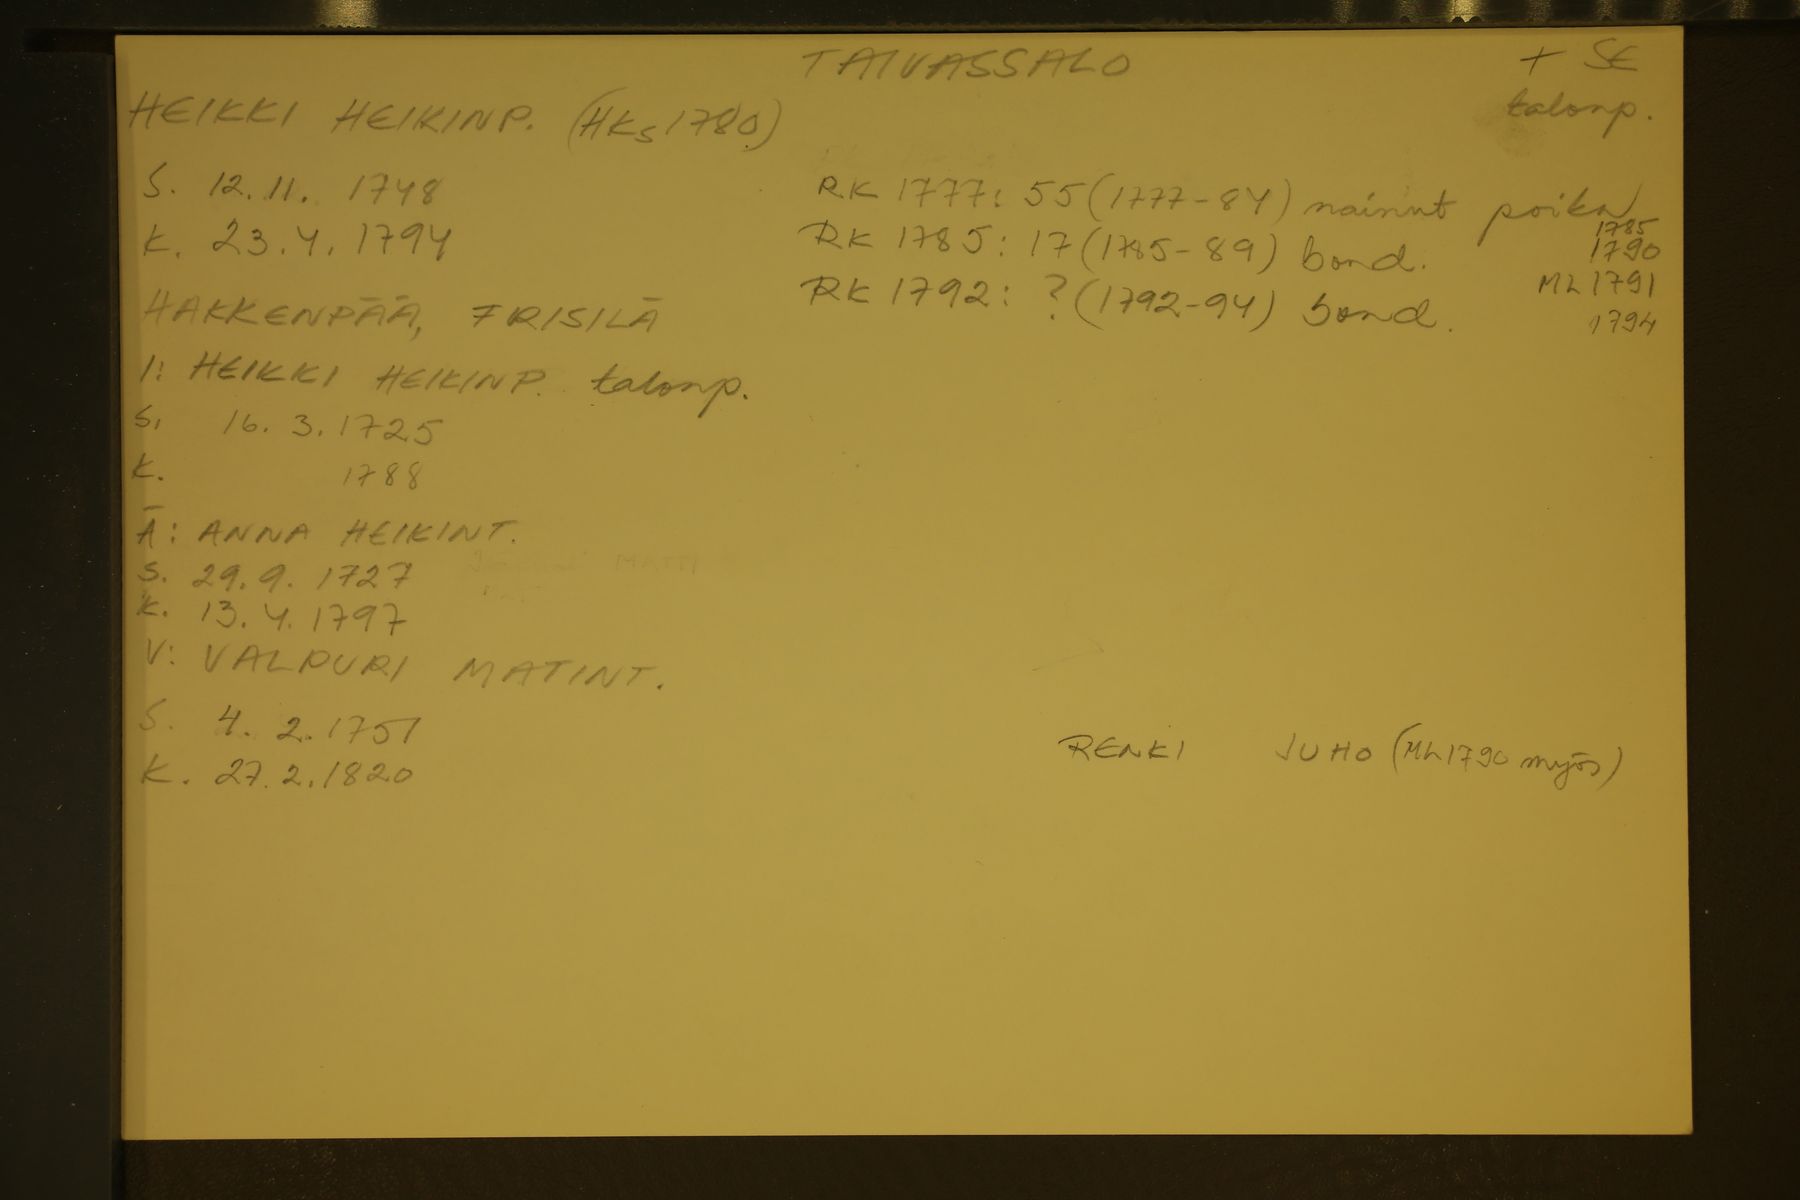 TAIVASSALO
+ SE
talonp.
HEIKKI HEIKINP. (HKs 1780)
S. 12.11. 1748
K. 23.4. 1794
HAKKENPÄÄ, FRISILÄ
I: HEIKKI HEIKINP. talonp.
S. 16. 3. 1725
K. 1788
Ä: ANNA HEIKINT.
S. 29. 9. 1727
K. 13. 4. 1797
V: VALPURI MATINT.
S. 4. 2. 1751
K. 27. 2. 1820
RK 1777: 55 (1777-84) nainut poika
RK 1785: 17 (1785-89) bond.
RK 1792: ? (1792-94) bond.
1785
1790
ML 1791
1794
RENKI JUHO (ML 1790 myös)